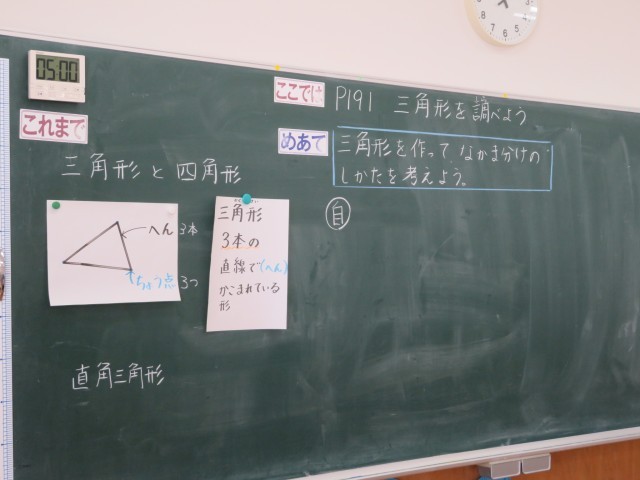 05:00
これまで
三角形と四角形
へん 3本
ちょう点 3つ
三角形
3本の
直線で(へん)
かこまれている
形
直角三角形
ここでは
P191 三角形を調べよう
めあて
三角形を作って、なかま分けの
しかたを考えよう。
自